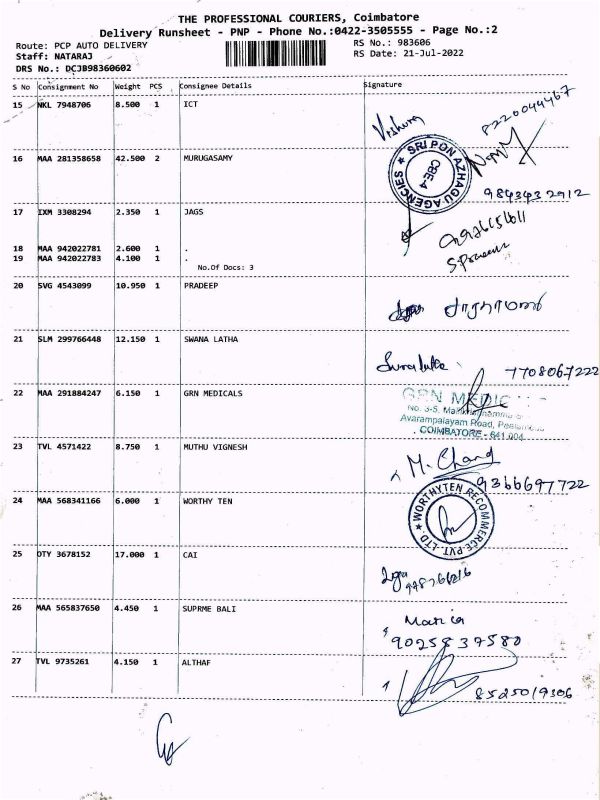 THE PROFESSIONAL COURIERS, Coimbatore
Delivery Runsheet - PNP - Phone No.:0422-3505555 - Page No.:2
Route: PCP AUTO DELIVERY
RS No.: 983606
Staff: NATARAJ
RS Date: 21-Jul-2022
DRS No.: DCJB98360602
S No Consignment No Weight PCS Consignee Details Signature
15 NKL 7948706 8.500 1 ICT
8220044467
16 MAA 281358658 42.500 2 MURUGASAMY
SRI PON AZHAGU AGENCIES ★
CBE-4
9843432912
17 IXM 3308294 2.350 1 JAGS
18 MAA 942022781 2.600 1 .
19 MAA 942022783 4.100 1 .
No.Of Docs: 3
20 SVG 4543099 10.950 1 PRADEEP
21 SLM 299766448 12.150 1 SWANA LATHA
7708067222
22 MAA 291884247 6.150 1 GRN MEDICALS
GRN
No. 3-5,
Avarampalayam Road,
COIMBATORE - 641 004
23 TVL 4571422 8.750 1 MUTHU VIGNESH
M. Chand
9366697722
24 MAA 568341166 6.000 1 WORTHY TEN
★ WORTHYTEN RECOMMERCE PVT. LTD.
25 OTY 3678152 17.000 1 CAI
26 MAA 565837650 4.450 1 SUPRME BALI
9025837580
27 TVL 9735261 4.150 1 ALTHAF
8525019306